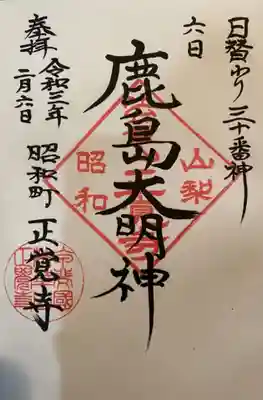 日替わり三十番神
六日
鹿島大明神
山梨
昭和
奉拝 令和三年
二月六日
昭和町 正覚寺